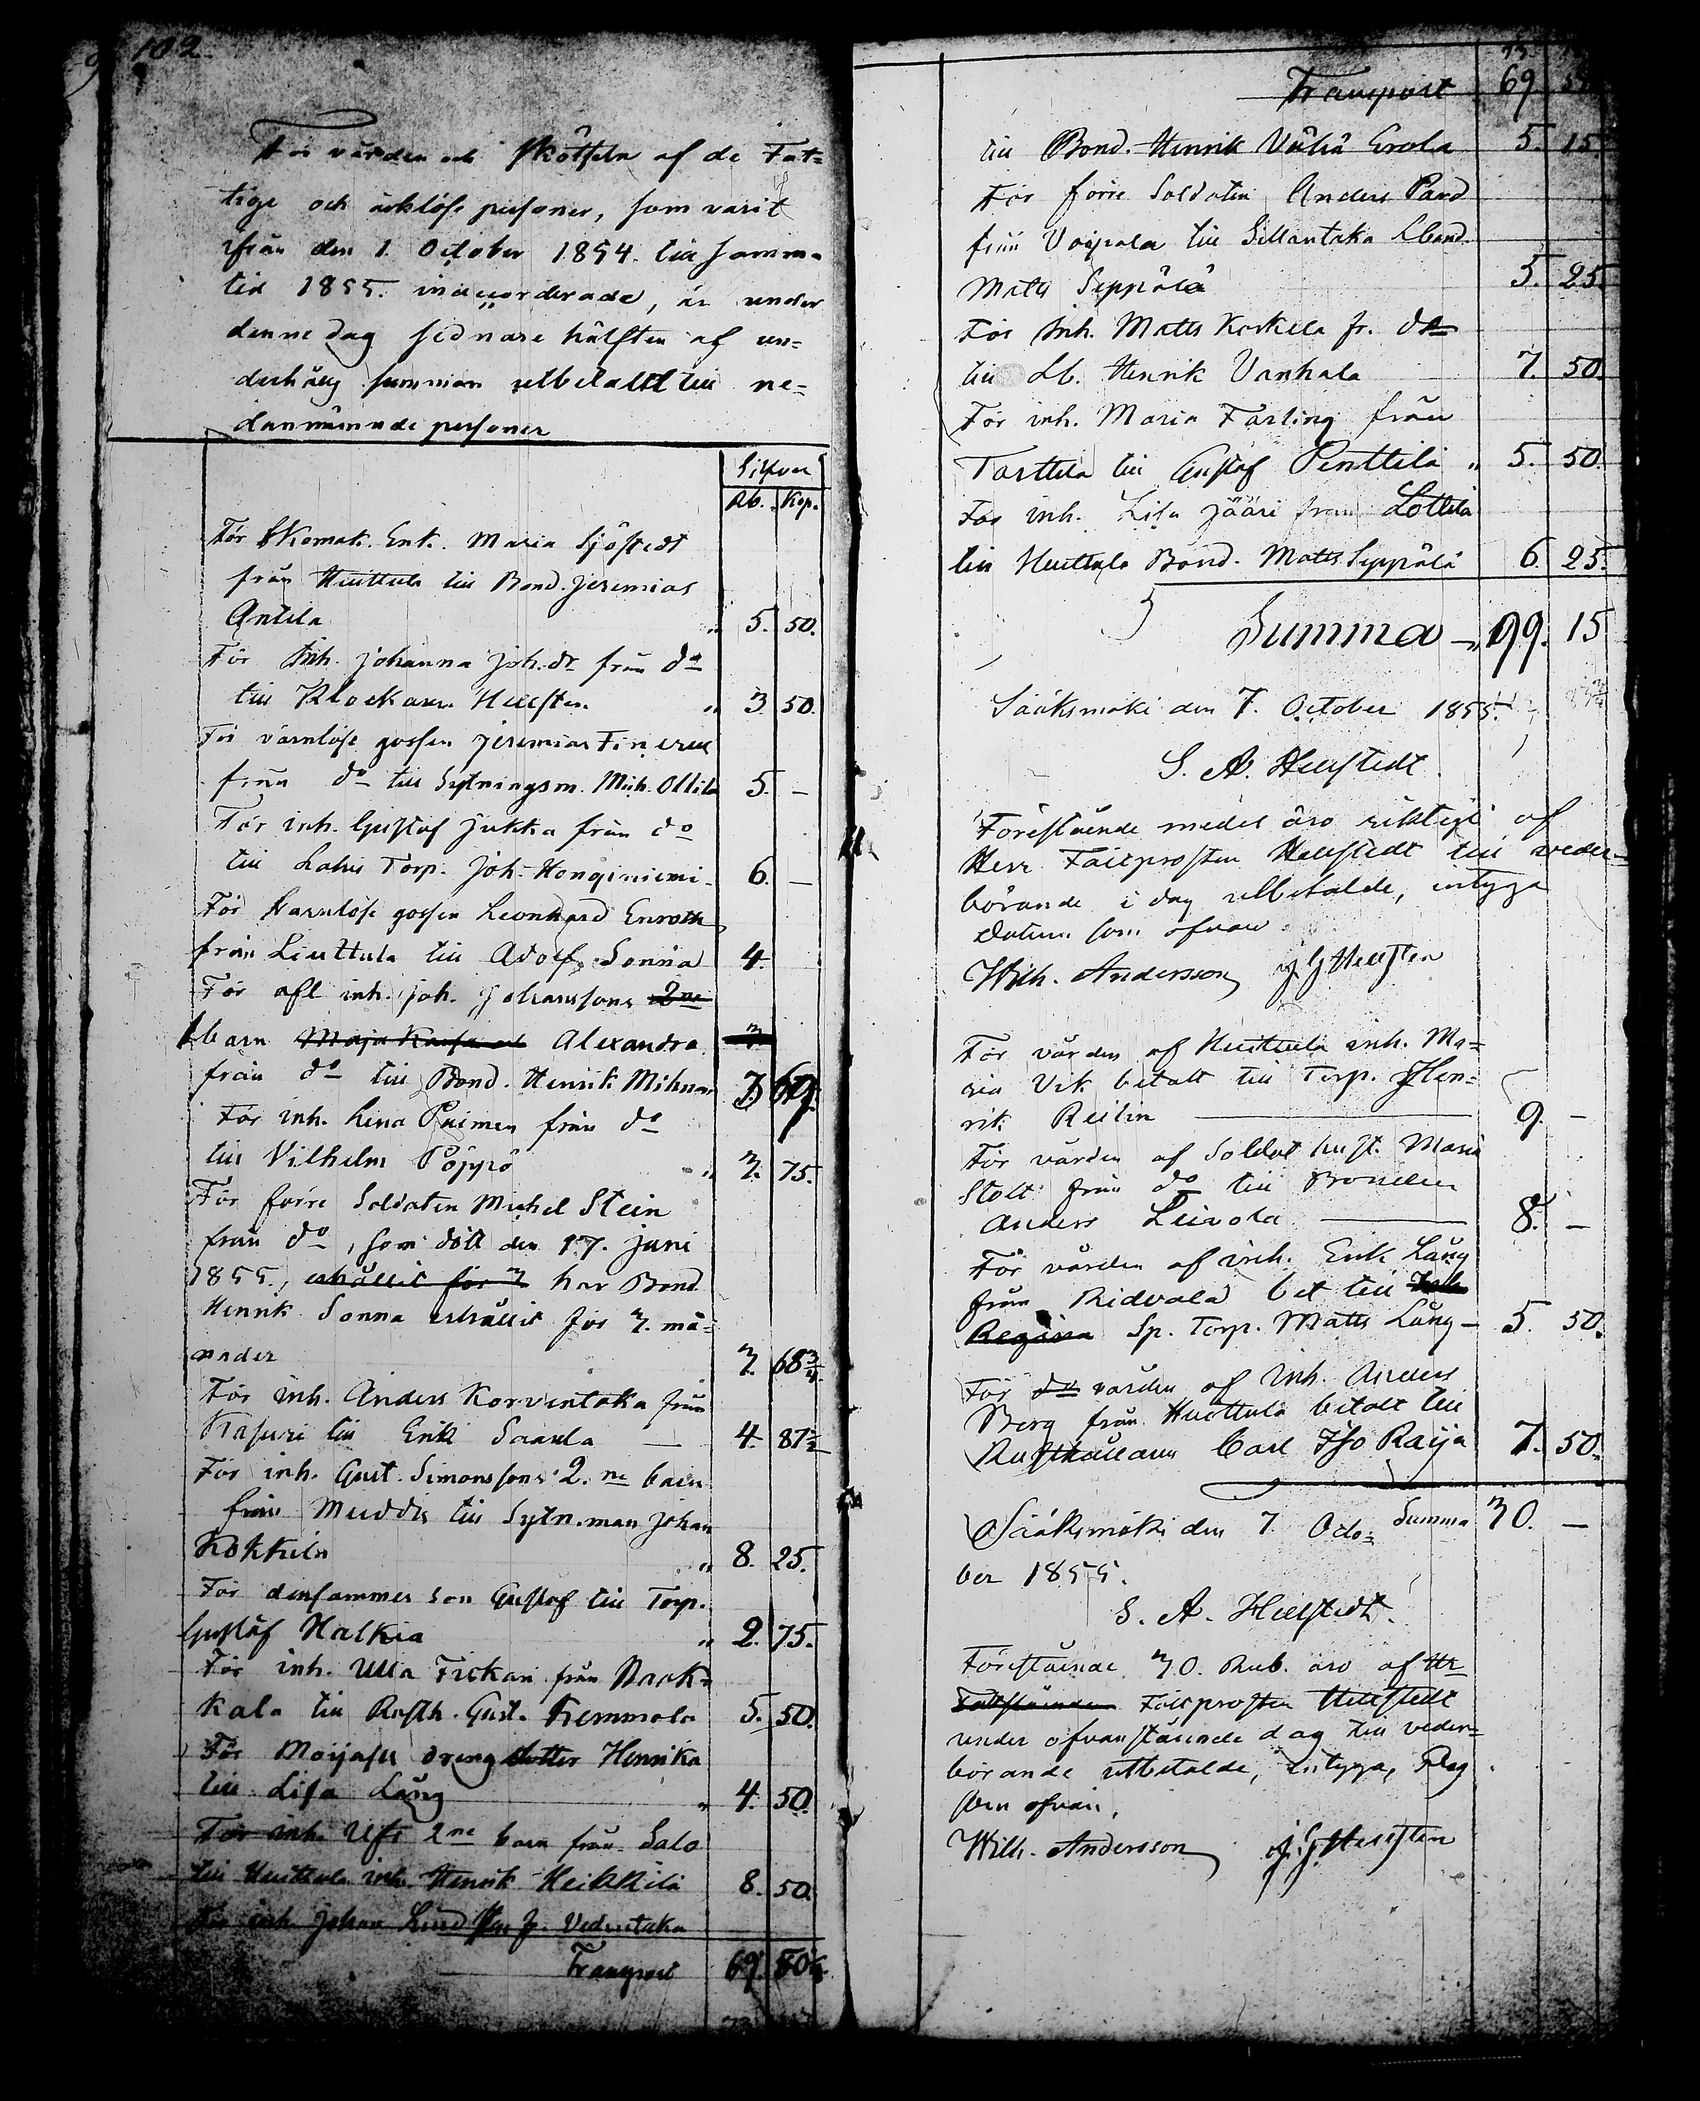 102.
För vården och skötseln af de Fat-
tige och ärklöse personer, som varit
ifrån den 1. October 1854. till samma
tid 1855. inaccorderade, är under
denne dag sednare hälften af un-
derhålls summan utbetaldt till ne-
dannämnde personer
Silfver
Rb. Kop.
För Skomak. Enk. Maria Sjöstedt
från Huittula till Bond. Jeremias
Antila " 5. 50.
För Inh. Johanna Joh.dr från do
till Klockaren Hellsten " 3 50.
För värnlöse gossen Jeremias
från do till Sytningsm. Mich. Ollila 5. -
För inh. Gustaf Jukka från do
till Lahis Torp. Joh. Honginiemi 6. -
För Värnlöse gossen Leonhard Enroth
från Liuttula till Adolf Sonna 4.
För afl inh. Joh. Johanssons 2ne
barn Maja Kaisa och Alexandra
från do till Bond. Henrik
För inh. Lena från do
till Vilhelm Pöppö " 7. 75.
För förre Soldaten Michel Stein
från do, som dött den 17. Juni
1855., erhållit för 7 har Bond
Henrik Sonna erhållit för 7. må-
nader 7. 68 3/4.
För inh. Anders Korventaka från
Kasuri till Erik Saarela — 4. 87 1/2
För inh. Gust. Simonssons 2.ne barn
från till Sytn.man Johan
" 8. 25.
För densammes son Gustaf till Torp.
Gustaf Halkia " 2. 75.
För inh. Ulla Fiskari från Raak-
kala till Rusth. Gust. Kemmola 5. 50.
För dreng dotter Henrika
till Lisa Lång " 4. 50.
För inh. Ufs 2ne barn från Salo
till Huittula inh. Henrik Heikkilä 8. 50.
För inh. Johan Lind fr. Vedentaka
Transport 69.
Transport 69
till Bond. Henrik Vähä Erola 5. 15.
För förre Soldaten Anders Pard
från Voipala till Sillantaka Lbond.
Matts Seppälä 5. 25
För Inh. Matts Koskela fr. do
till Lb. Henrik Vanhala 7. 50.
För inh. Maria Färling från
Tarttila till Gustaf Penttilä " 5. 50.
För inh. Lisa Jääri från Lottila
till Huittula Bond. Matts Seppälä 6. 25.
Summa — 99. 15
Sääksmäki den 7. October 1855.
S. A. Hellstedt
Förestående medel äro riktigt af
Herr Fältprosten Hellstedt till veder-
börande i dag utbetalde, intyga
Datum som ofvan
Wilh. Andersson J G Hellsten
För vården af Huittula inh. Ma-
ria Vik betalt till Torp. Hen-
rik Reilin — 9. -
För vården af Soldat hust. Maria
Stolt från do till Bonden
Anders Leivola — 8. -
För vården af inh. Erik Lång
från Ridvala bet till Inh
Regina Sp. Torp. Matts Lång - 5. 50.
För do vården af Inh. Anders
Berg från Huittula betalt till
Rusthållaren Carl Iso Raija 7. 50.
Summa 30. -
Sääksmäki den 7 Octo-
ber 1855.
S. A. Hellstedt.
Förestående 30. Rub. äro af Hr
Fältprosten Hellstedt
under ofvanstående dag till veder-
börande utbetalde, intyga, Dag
som ofvan.
Wilh. Andersson J. G. Hellsten